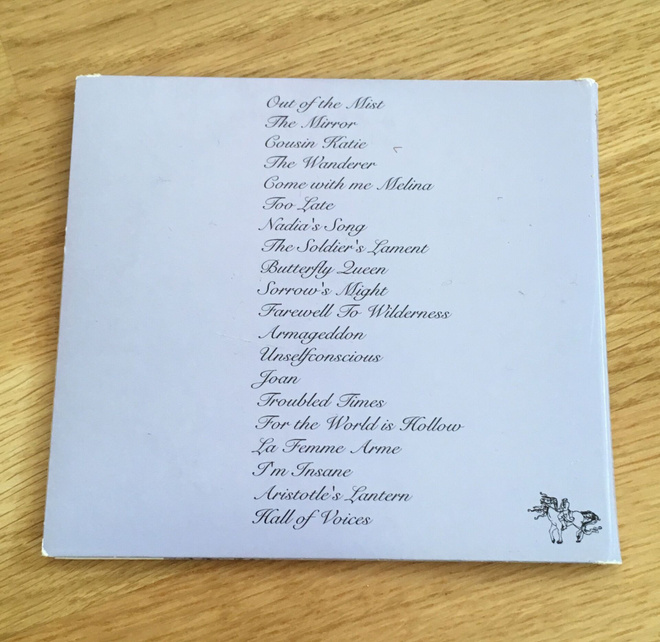 Out of the Mist
The Mirror
Cousin Katie
The Wanderer
Come with me Melina
Too Late
Nadia's Song
The Soldier's Lament
Butterfly Queen
Sorrow's Might
Farewell To Wilderness
Armageddon
Unselfconscious
Joan
Troubled Times
For the World is Hollow
La Femme Arme
I'm Insane
Aristotle's Lantern
Hall of Voices